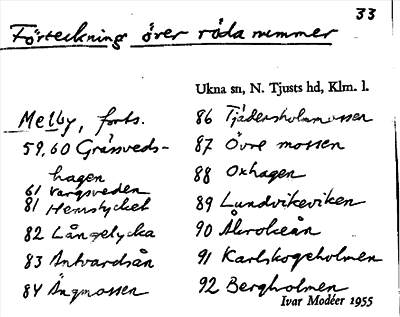 33
Förteckning över röda nummer
Ukna sn, N. Tjusts hd, Klm. l.
Melby, forts.
59,60 Gräsveds-
hagen
61 Vargsveden
81 Hemstycket
82 Långelycka
83 Antvardsån
84 Ängmossen
86 Tjädersholmmossen
87 Övre mossen
88 Oxhagen
89 Lundvikeviken
90 Åkrokeån
91 Karlskogeholmen
92 Bergholmen
Ivar Modéer 1955